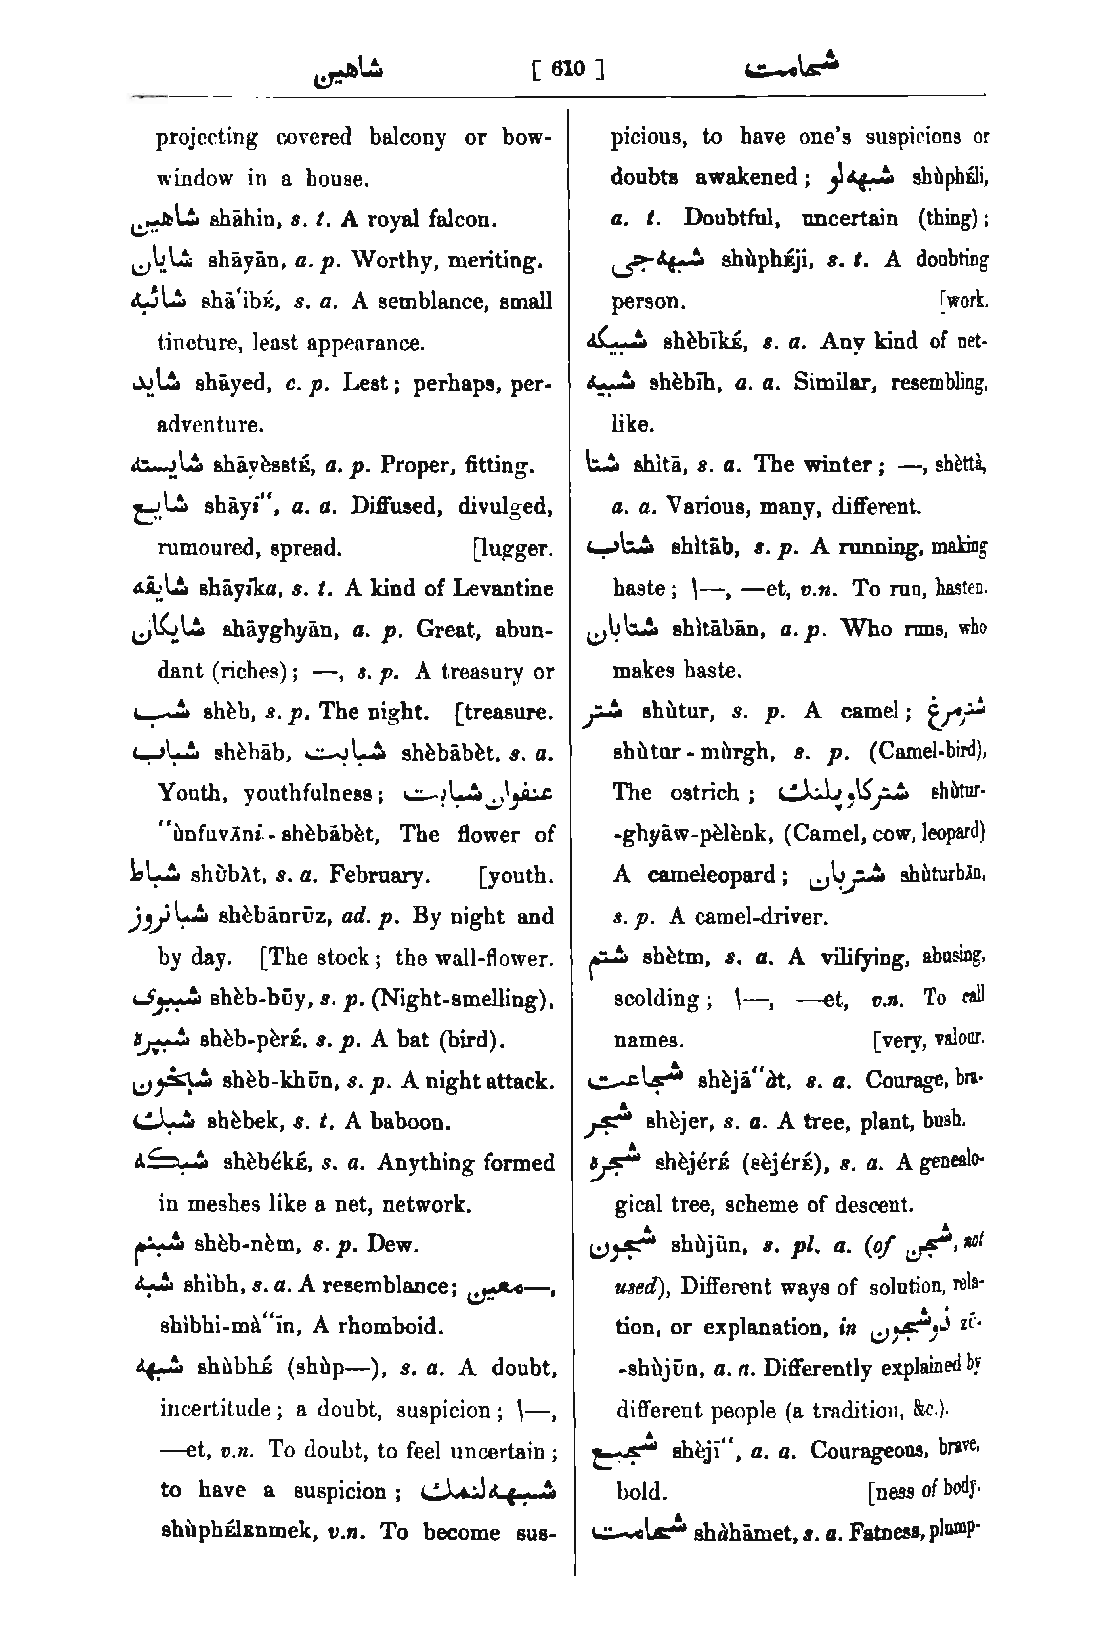 شاهين [ 610 ] شحامت
projecting covered balcony or bow-
window in a house.
شاهين shāhin, s. t. A royal falcon.
شايان shāyān, a. p. Worthy, meriting.
شائبه shā'ibÉ, s. a. A semblance, small
tincture, least appearance.
شايد shāyed, c. p. Lest; perhaps, per-
adventure.
شايسته shāyèsstÉ, a. p. Proper, fitting.
شايع shāyi‘‘, a. a. Diffused, divulged,
rumoured, spread. [lugger.
شايقه shāyika, s. t. A kind of Levantine
شايكان shāyghyān, a. p. Great, abun-
dant (riches); —, s. p. A treasury or
شب shèb, s. p. The night. [treasure.
شباب shèbāb, شبابت shèbābèt, s. a.
Youth, youthfulness; عنفوان شبابت
‘‘ùnfuvāni-shèbābèt, The flower of
شباط shùbàt, s. a. February. [youth.
شبانروز shèbānrūz, ad. p. By night and
by day. [The stock; the wall-flower.
شببوى shèb-būy, s. p. (Night-smelling),
شبپره shèb-pèrÉ, s. p. A bat (bird).
شبخون shèb-khūn, s. p. A night attack.
شبك shèbek, s. t. A baboon.
شبكه shèbékÉ, s. a. Anything formed
in meshes like a net, network.
شبنم shèb-nèm, s. p. Dew.
شبه shibh, s. a. A resemblance; —معين,
shibhi-mà‘‘īn, A rhomboid.
شبهه shùbhÉ (shùp—), s. a. A doubt,
incertitude; a doubt, suspicion; \—,
—et, v.n. To doubt, to feel uncertain;
to have a suspicion; شبهه‌لنمك
shùphÉlEnmek, v.n. To become sus-
picious, to have one's suspicions or
doubts awakened; شبهه‌لو shùphÉli,
a. t. Doubtful, uncertain (thing);
شبهه‌جى shùphÉji, s. t. A doubting
person. [work.
شبيكه shèbīkÉ, s. a. Any kind of net-
شبيه shèbīh, a. a. Similar, resembling,
like.
شتا shìtā, s. a. The winter; —, shèttà,
a. a. Various, many, different.
شتاب shìtāb, s. p. A running, making
haste; \—, —et, v.n. To run, hasten.
شتابان shìtābān, a. p. Who runs, who
makes haste.
شتر shùtur, s. p. A camel; شترمرغ
shùtur-mùrgh, s. p. (Camel-bird),
The ostrich; شتركاوپلنك shùtur-
-ghyāw-pèlènk, (Camel, cow, leopard)
A cameleopard; شتربان shùturbān,
s. p. A camel-driver.
شتم shètm, s. a. A vilifying, abusing,
scolding; \—, —et, v.n. To call
names. [very, valour.
شجاعت shèjā‘‘àt, s. a. Courage, bra-
شجر shèjer, s. a. A tree, plant, bush.
شجره shèjérÉ (sèjérÉ), s. a. A genealo-
gical tree, scheme of descent.
شجون shùjūn, s. pl. a. (of شجن, not
used), Different ways of solution, rela-
tion, or explanation, in ذوشجون zū-
-shùjūn, a. a. Differently explained by
different people (a tradition, &c.).
شجيع shèjī‘‘, a. a. Courageous, brave,
bold. [ness of body.
شحامت shàhāmet, s. a. Fatness, plump-